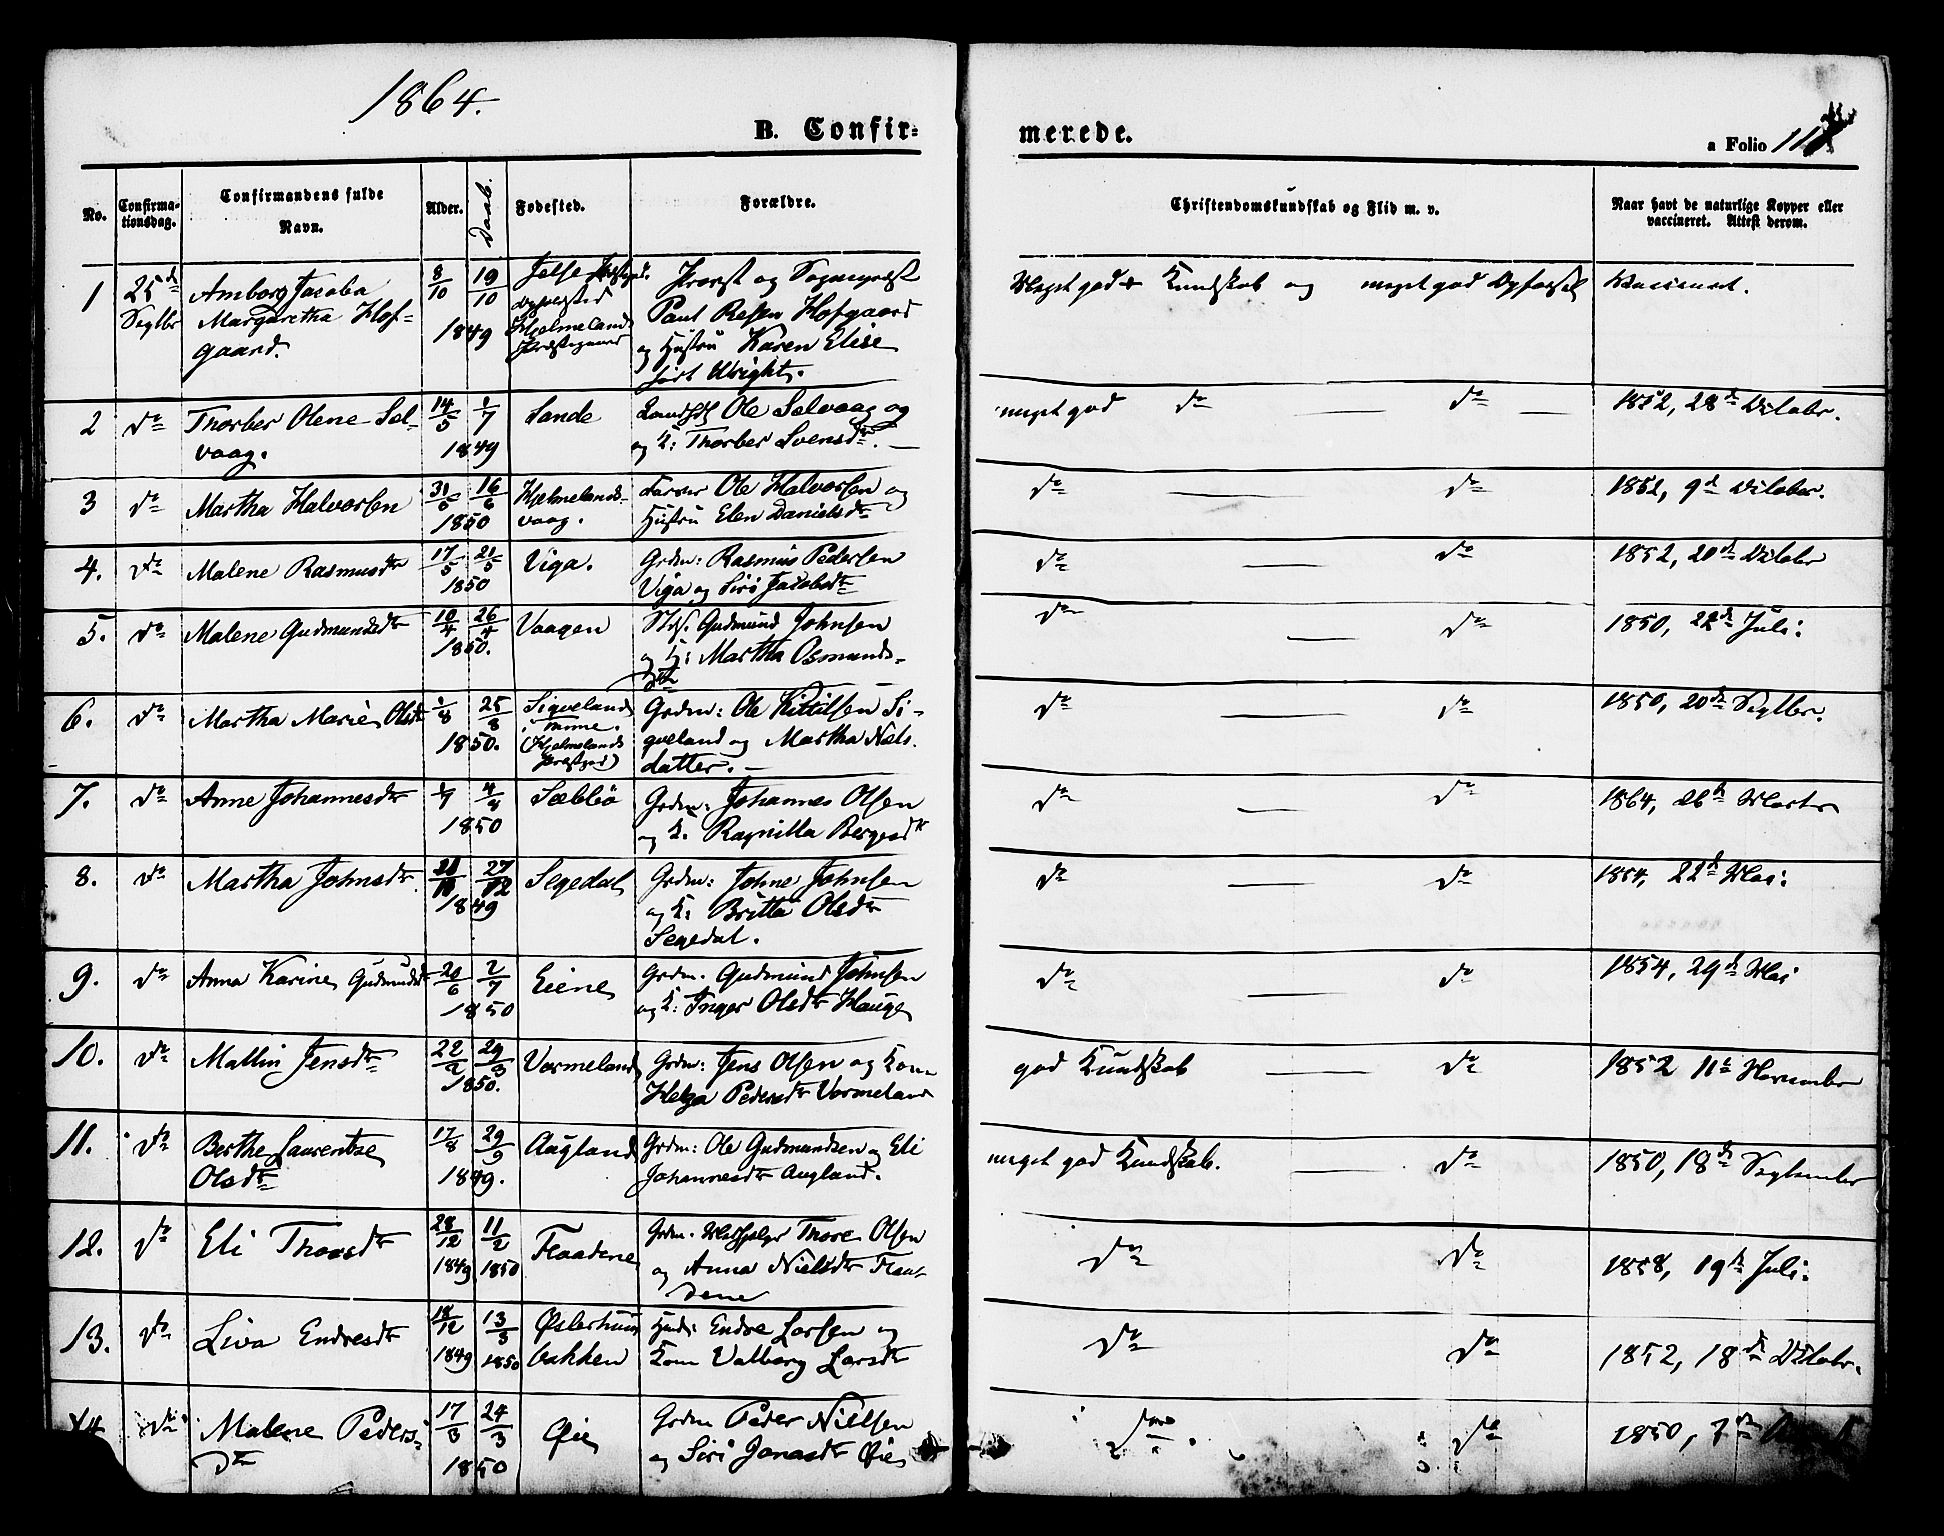 1864.
B. Confir-
merede.
a Folio
No.
Confirma-
tionsdag.
Confirmandens fulde
Navn.
Alder.
Daab.
Fødested.
Forældre.
Christendomskundskab og Flid m. v.
Naar havt de naturlige Kopper eller
vaccineret. Attest derom.
1
25de
Septbr
Amborg Jacoba
Margaretha Hof-
gaard.
8/10
19/10
1849
Jelse Præstegd.
Hjelmelands
Præstegaard
Provst og Sognepræst
Paul Resen Hofgaard
og Hustru Karen Elise
født Wright.
Meget god Kundskab og meget god Opførsel
Vaccineret.
2
do
Thorber Olene Sel-
vaag.
14/5
1/7
1849
Sande
Ole Selvaag og
og K: Thorber Svensdr. —
meget god do — do —
1852, 28de Octobr.
3
do
Martha Halvorsen
31/5
16/6
1850
Hjelmelands-
vaag.
Ole Halvorsen og
Hustru Elen Danielsdr
do — do
1852, 9de October.
4.
do
Malene Rasmusdtr
17/5
21/5
1850
Viga.
Grdm: Rasmus Pedersen
Viga og Siri Jacobsdtr
do — do
1852, 20de Octobr
5.
do
Malene Gudmundsdtr
10/4
26/4
1850.
Vaagen
Gudmund Johnsen
og H: Martha Osmunds-
dtr
do — do
1850, 22de Juli.
6.
do
Martha Marie Olsdtr
1/8
25/8
1850.
Sigveland
(Hjelmelands
Præstgjed)
Grdm: Ole Kittilsen Si-
gveland og Martha Nels
datter. —
do — do
1850, 20de Septbr.
7.
do
Anne Johannesdtr
4/4
1850
Sæbbø
Grdm: Johannes Olsen
og K. Ragnilla Bergesdtr
do — do
1864, 26de Marts
8.
do
Martha Johnsdtr
27/12
1849
Segedal
Grdm: Johne Johnsen
og K: Britta Olsdtr
Segedal.
do — do
1854, 22de Mai.
9.
do
Anna Karine Gudmundsdtr
20/6
2/7
1850
Eiene
Grdm. Gudmund Johnsen
og K: Inger Olsdtr Hauge
do — do
1854, 29de Mai
10.
do
Mallin Jensdtr
22/2
29/3
1850.
Vormeland
Grdm: Jens Olsen og Kone
Helga Pedersdtr Vormeland
god Kundskab — do
1852 11te November
11.
do
Berthe Laurentse
Olsdtr
17/8
29/9
1849.
Augland
Grdm: Ole Gudmundsen og Eli
Johannesdtr Augland.
meget god Kundskab. — do
1850, 18de September
12.
do
Eli Thoresdtr
28/12
1849
11/2
1850
Flaatene
Grdm. Medhjelper Thore Olsen
og Anna Nielsdtr Flaa-
tene
do do
1858, 19de Juli.
13.
do
Liva Endresdtr
18/12
1849
13/3
1850
Østerhuus
bakken
Huusm: Endre Larsen og
Kone Valborg Larsdtr
do do
1852, 18de Octobr.
14
do
Malene Peders-
dtr
17/3
24/3
1850
Øie
Grdm Peder Nielsen
og Siri Jonasdtr Øie
do do
1850, 7de